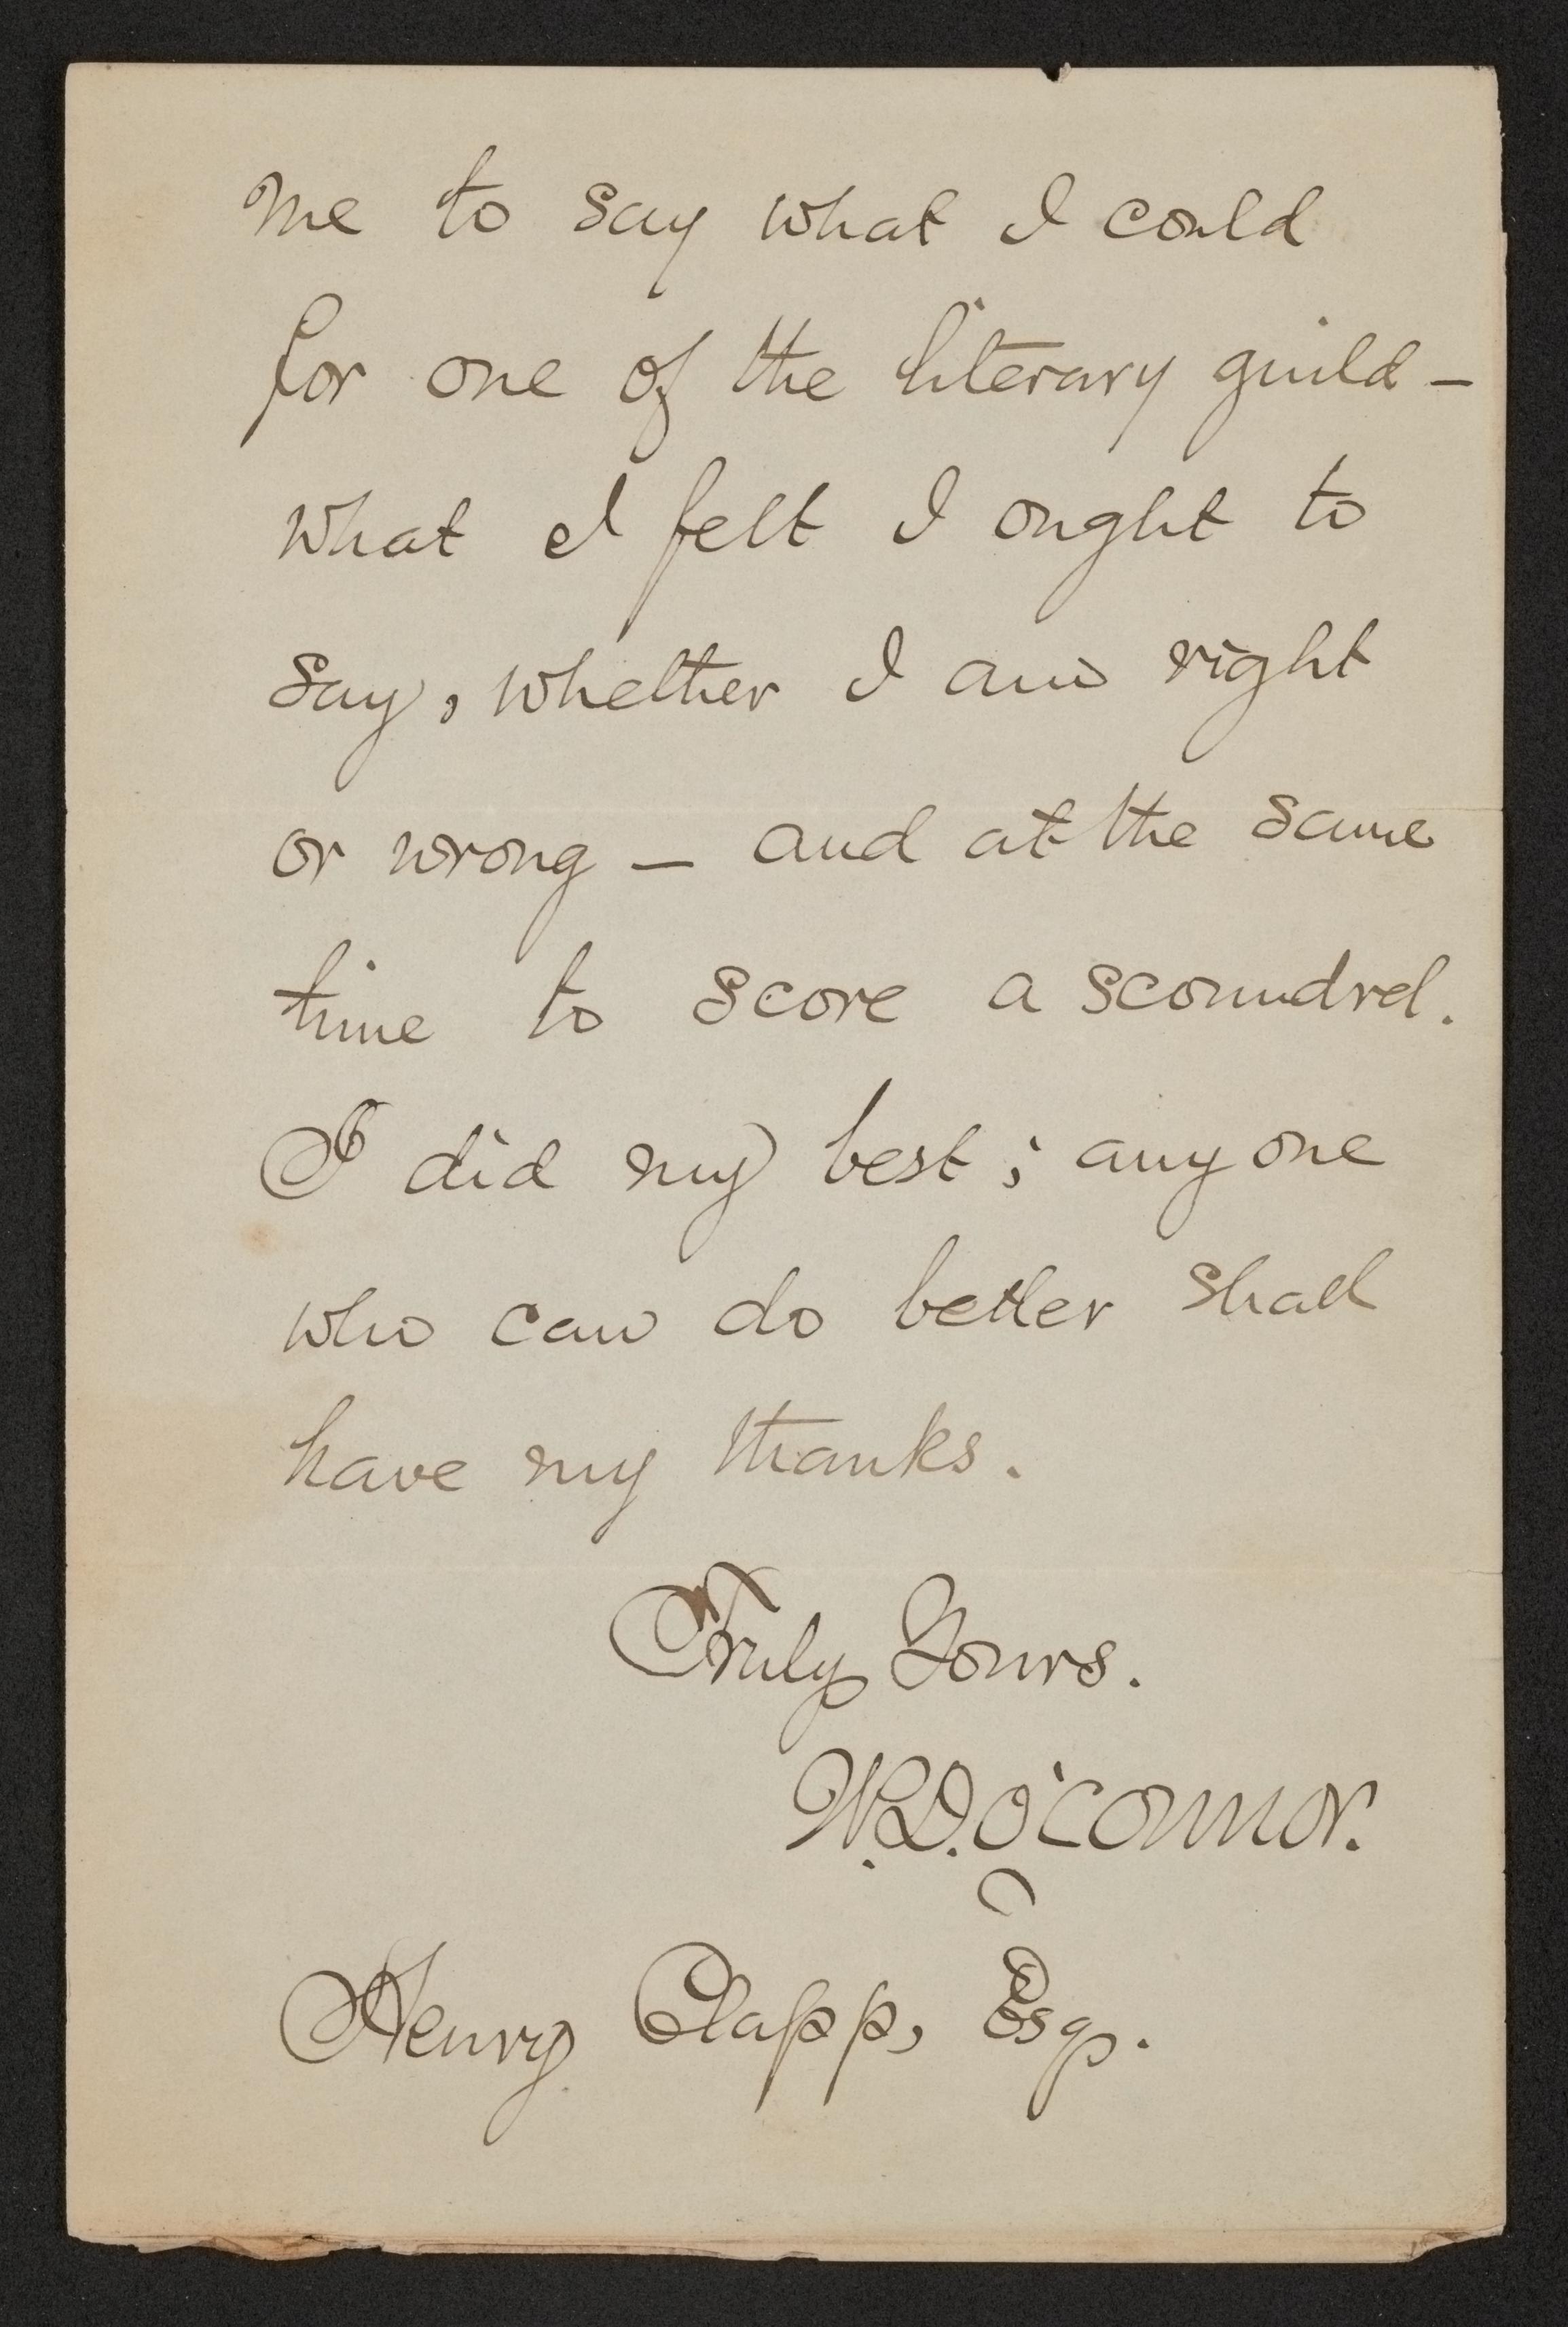 me to say what I could
for one of the literary guild —
what I felt I ought to
say, whether I am right
or wrong — and at the same
time to score a scoundrel.
I did my best; anyone
who can do better shall
have my thanks.
Truly Yours.
W.D. O'Connor.
Henry Clapp, Esq.